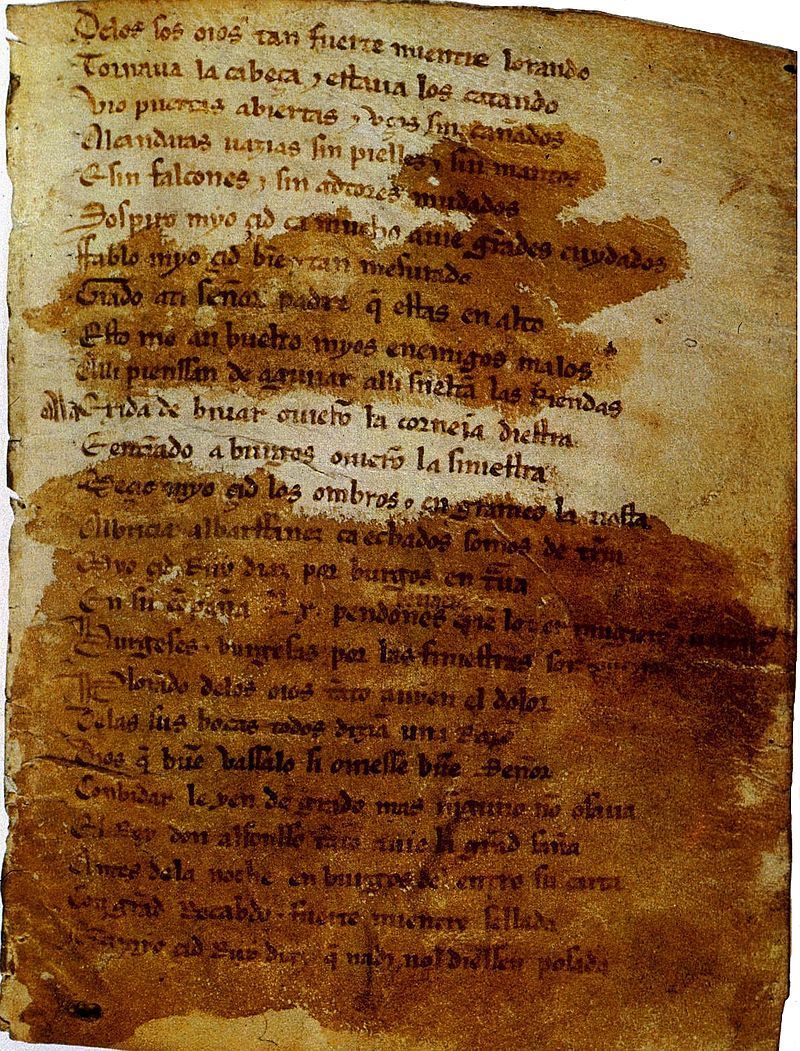 Delos sos oios tan fuerte mientre lorando
Tornaua la cabeça ⁊ estaua los catando
Vio puertas abiertas ⁊ vços sin cañados
Alcandaras uazias sin pielles ⁊ sin mantos
E sin falcones ⁊ sin adtores mudados
Sospiro myo çid ca mucho auie grãdes cuydados
Ffablo myo çid bien ⁊ tan mesurado
Grado ati señor padre q̃ estas en alto
Esto me an buelto myos enemigos malos
Alli pienssan de aguiiar alli sueltã las Riendas
Exida de biuar ouierõ la corneia diestra
E entrãdo a burgos ouierõ la siniestra
Meçio myo çid los ombros ⁊ en grameo la tiesta
Albricia albarffanez ca echados somos de tr̃ra
Myo çid Ruy diaz por burgos en traua
En su cõpaña .Lx. pendones
Burgeses ⁊ burgesas por las finiestras son
Plorãdo delos oios tãto auyen el dolor
Delas sus bocas todos diziã una Razõ
Dios q̃ buẽ vassalo si ouiesse buẽ Señor
Conbidar le yen de grado mas ninguno nõ osaua
El Rey don alfonsso tãto auie la grãd saña
Antes dela noche en burgos del entro su carta
Con grãd Recabdo ⁊ fuerte mientre sellada
Q̃ a myo çid Ruy diaz q̃ nadi nol diessen posada